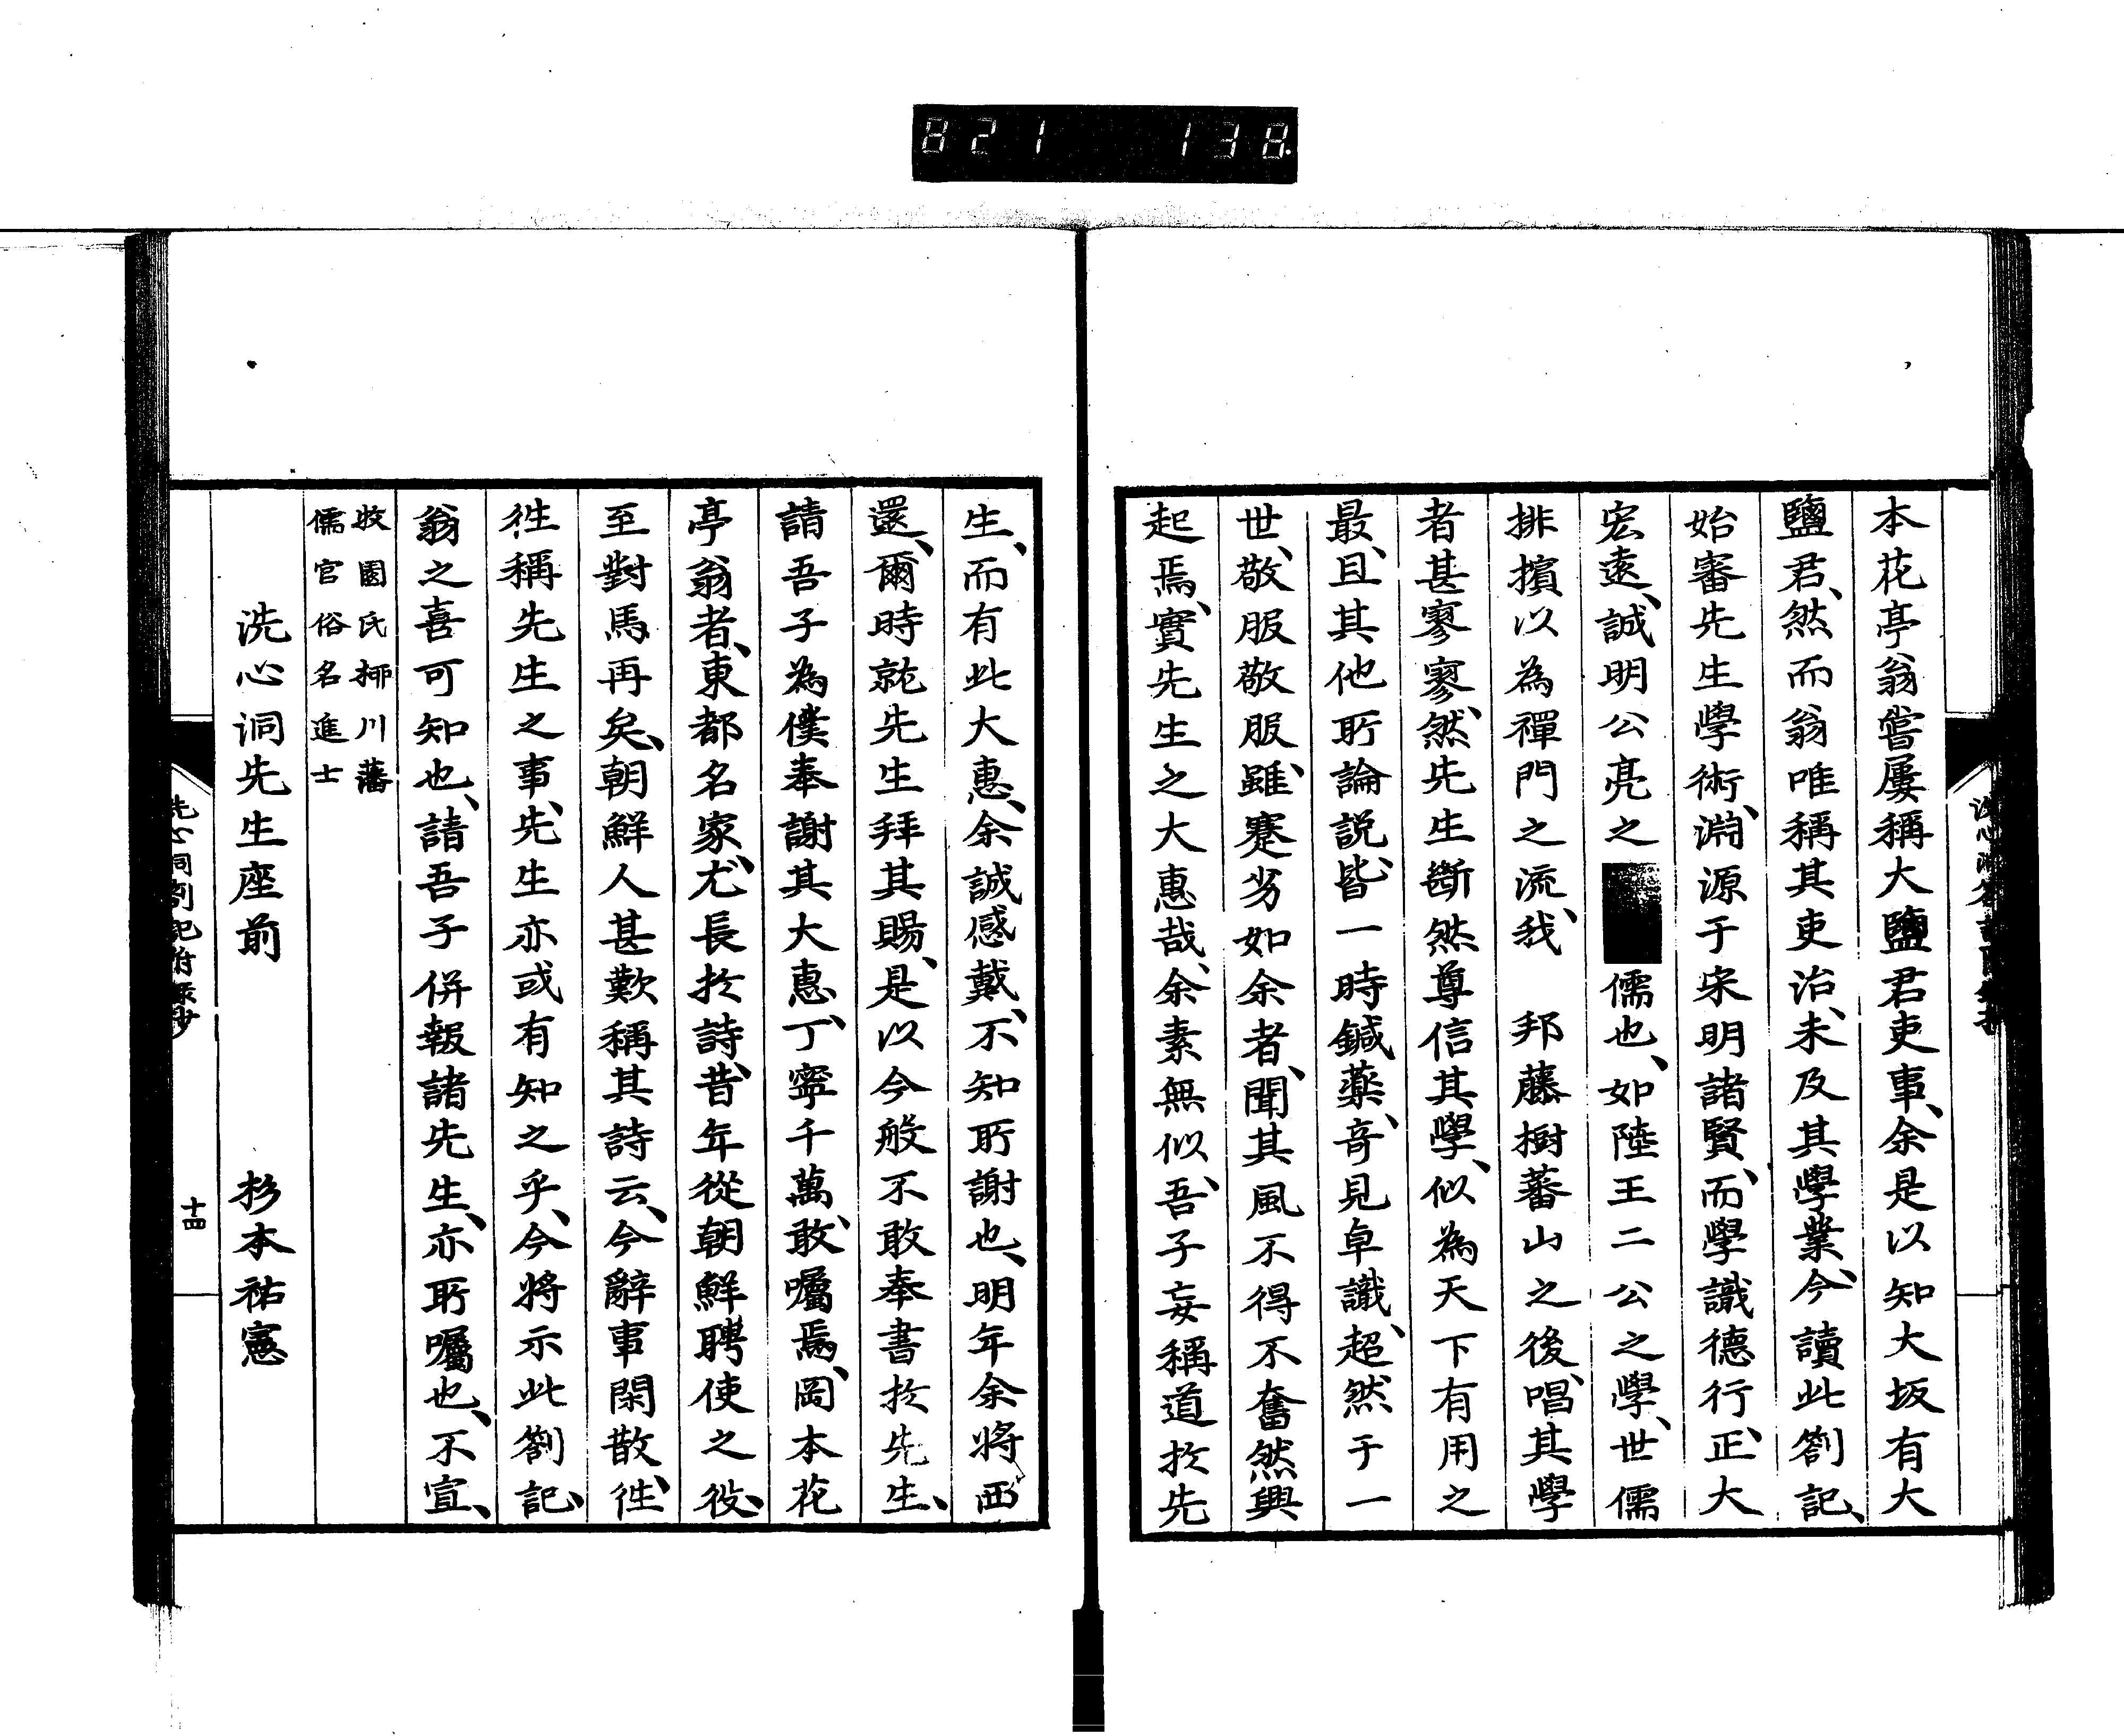 821 138
本花亭翁嘗屡稱大鹽君吏事、余是以知大坂有大
鹽君、然而翁唯稱其吏治、未及其學業、今讀此劄記、
始審先生學術、淵源于宋明諸賢、而學識德行、正大
宏遠、誠明公亮之儒也、如陸王二公之學、世儒
排擯以為禪門之流、我 邦藤樹蕃山之後、唱其學
者甚寥寥、然先生斷然尊信其學、似為天下有用之
最、且其他所論説、皆一時鍼藥、奇見卓識、超然于一
世、敬服敬服、雖蹇劣如余者、聞其風不得不奮然興
起焉、實先生之大惠哉、余素無似、吾子妄稱道於先
生、而有此大惠、余誠感戴、不知所謝也、明年余將西
還、爾時就先生拜其賜、是以今般不敢奉書於先生、
請吾子為僕奉謝其大惠、丁寧千萬、敢囑焉、岡本花
亭翁者、東都名家、尤長於詩、昔年從朝鮮聘使之役、
至對馬再矣、朝鮮人甚歎稱其詩云、今辭事閑散、徃
徃稱先生之事、先生亦或有知之乎、今將示此劄記、
翁之喜可知也、請吾子併報諸先生、亦所囑也、不宣、
牧園氏柳川藩
儒官俗名進士
洗心洞先生座前 杉本祐憲
洗心洞劄記附錄抄 十四